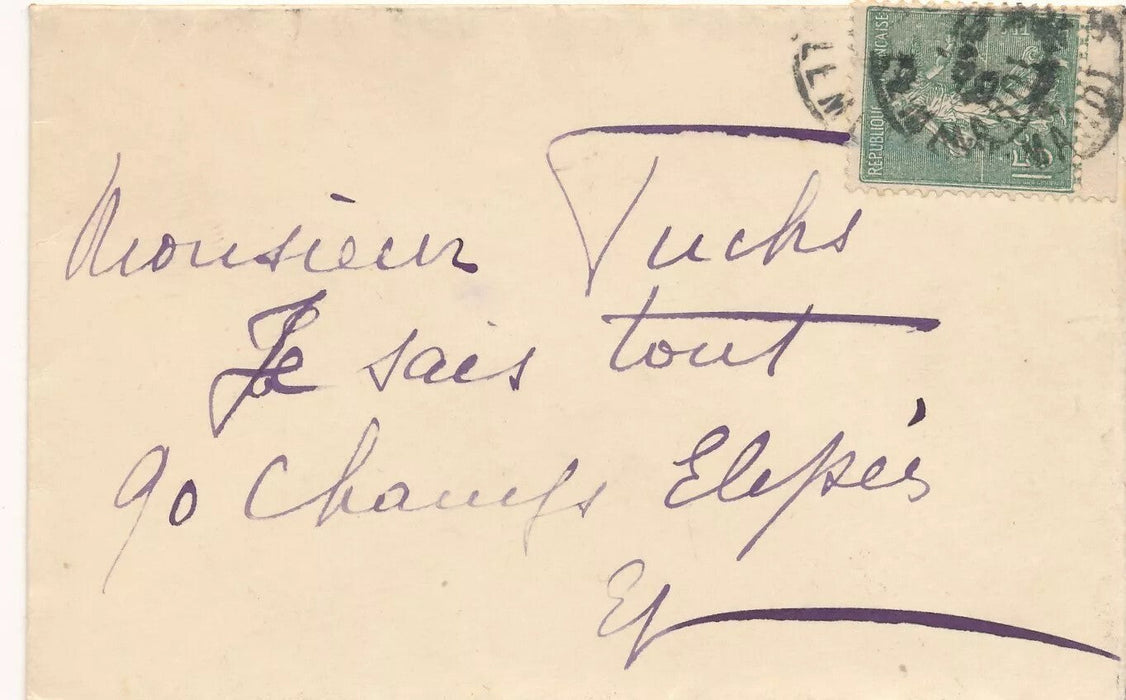 RÉPUBLIQUE FRANÇAISE
15c
Monsieur Fuchs
Je sais tout
90 Champs Elysées
EV